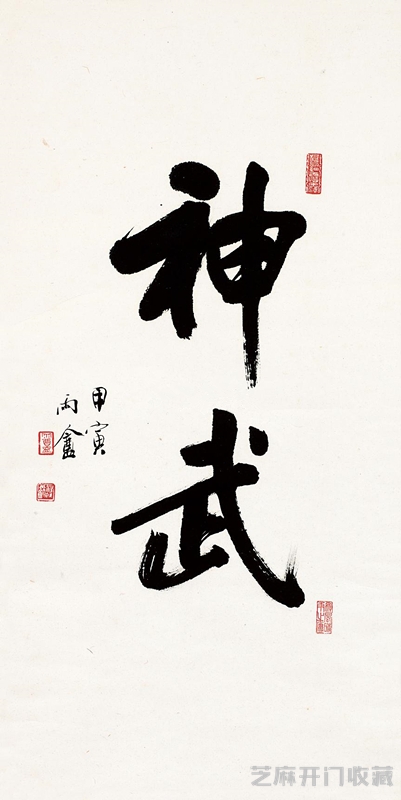 神武
甲寅
雨盦
芝麻开门收藏